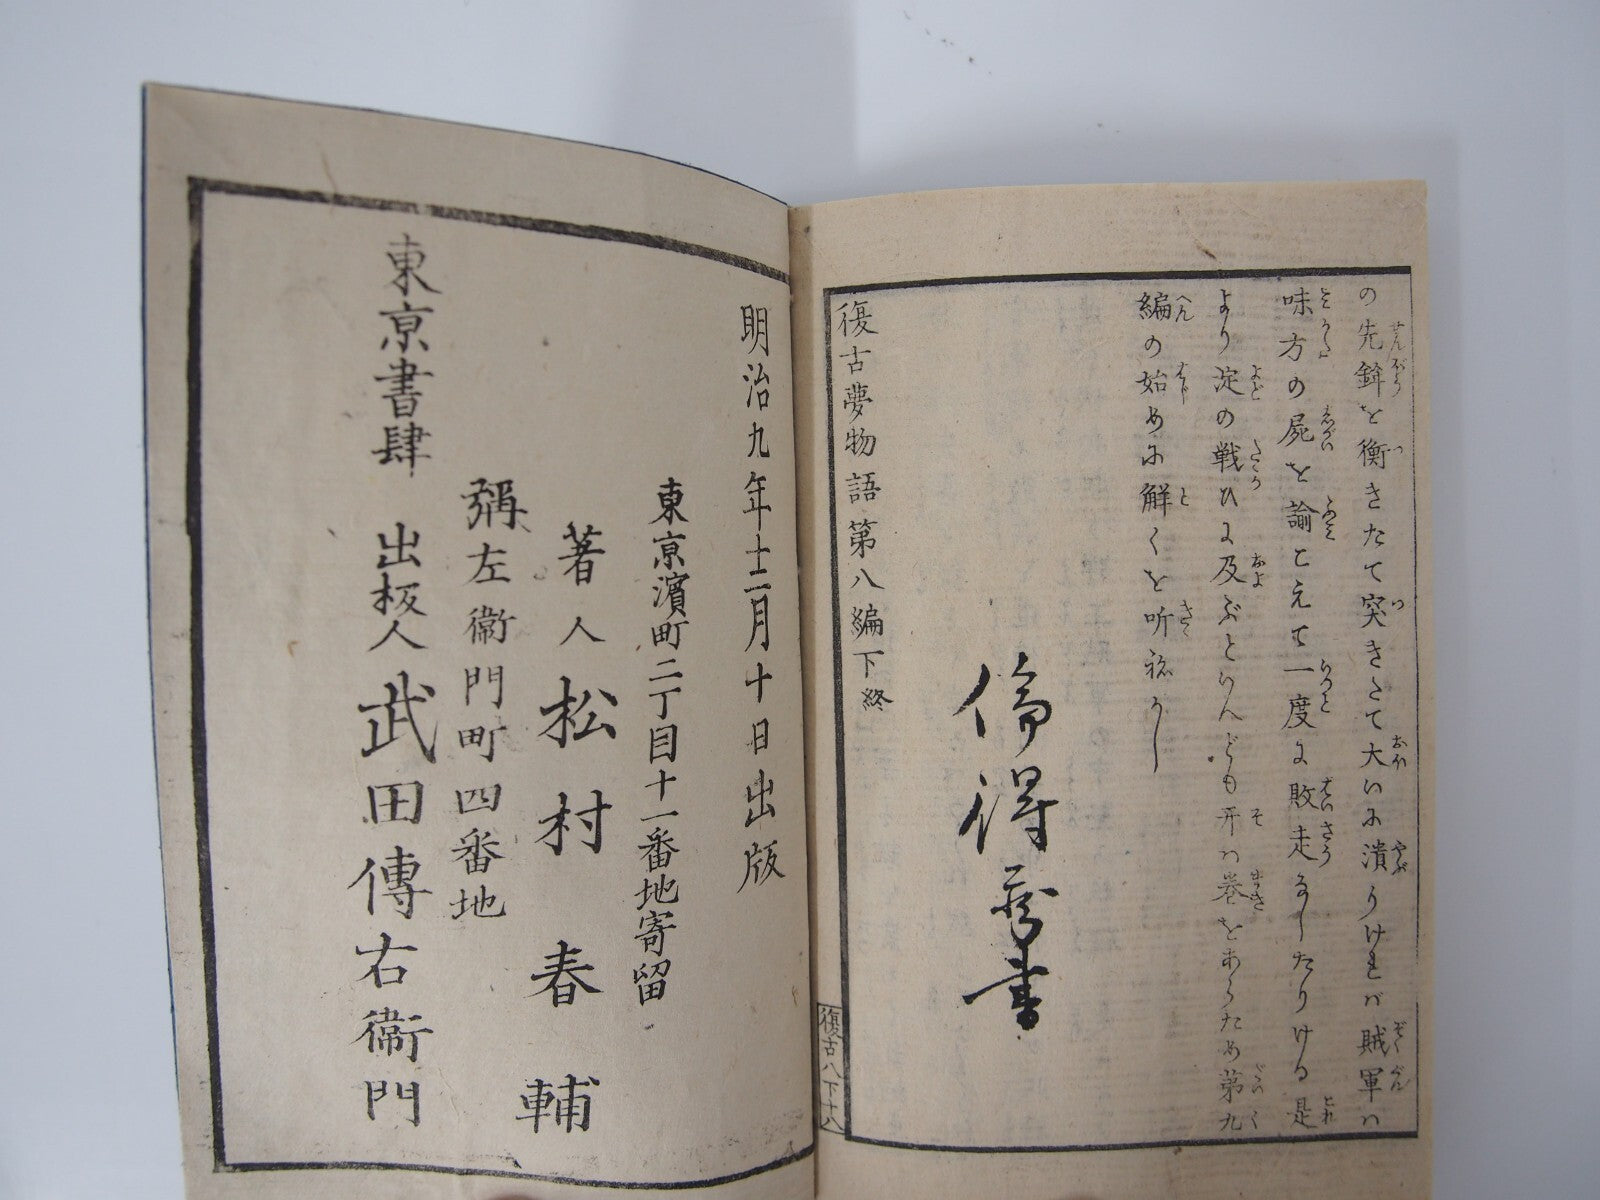 の先鋒を衝きたて突きたて大いに潰りけれバ賊軍ハ
味方の屍を踰こえて一度に敗走なしたりける是
より淀の戦ひに及ぶといへども开ハ巻をあらため第九
編の始めに解くを听ねかし
得
書
復古夢物語第八編下終
復古八下十八
明治九年十二月十日出版
東京濱町二丁目十一番地寄留
著人 松村春輔
彌左衞門町四番地
東京書肆 出板人 武田傳右衞門